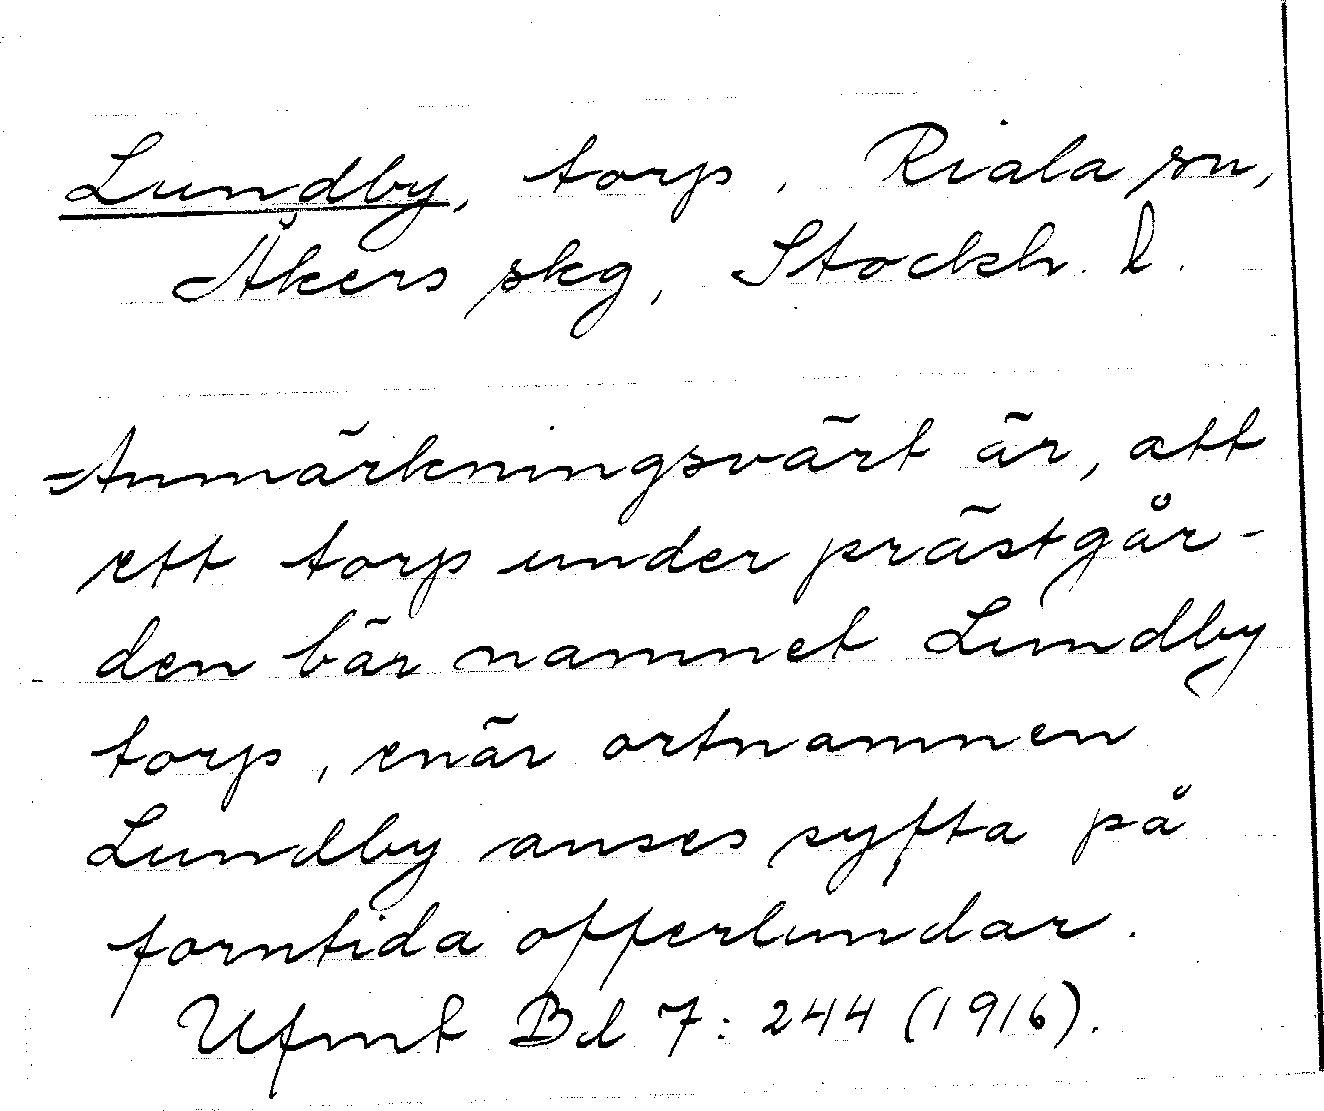 Lundby, torp, Riala sn,
Åkers skg, Stockh. l.
Anmärkningsvärt är, att
ett torp under prästgår-
den bär namnet Lundby
torp, enär ortnamnen
Lundby anses syfta på
forntida offerlundar.
Ufmt Bd 7: 244 (1916).